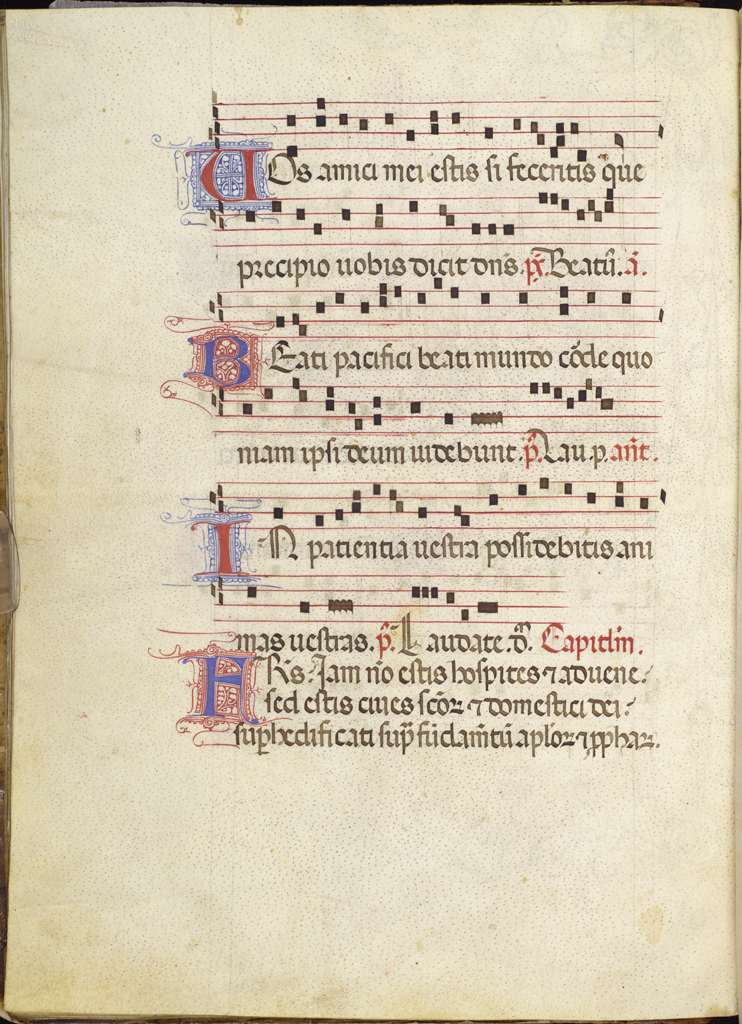 Uos amici mei estis si feceritis que
precipio uobis dicit dn̄s. p̄x. Beatū. ā.
Beati pacifici beati mundo cōde quo
niam ipsi deum uidebunt. p̄. Lau. p. an̄t.
In patientia uestra possidebitis ani
mas uestras. p̄. Laudate. d̄. Capitlm̄.
FRs. Jam nō estis hospites ⁊ aduene.
sed estis ciues scōꝝ ⁊ domestici dei.
suꝑhedificati suꝑ fūdam̄tū aplōꝝ ⁊ ꝓphaꝝ.